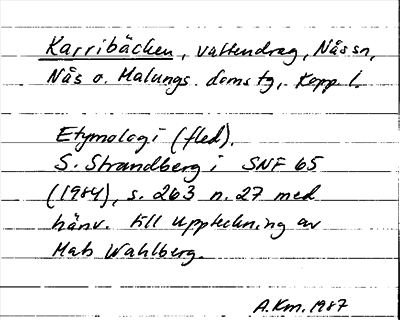 Karribäcken, vattendrag, Nås sn,
Nås o. Malungs doms tg, Kopp l.
Etymologi (fled).
S. Strandberg i SNF 65
(1984), s. 263 n. 27 med
hänv. till uppteckning av
Mats Wahlberg.
A.Km. 1987